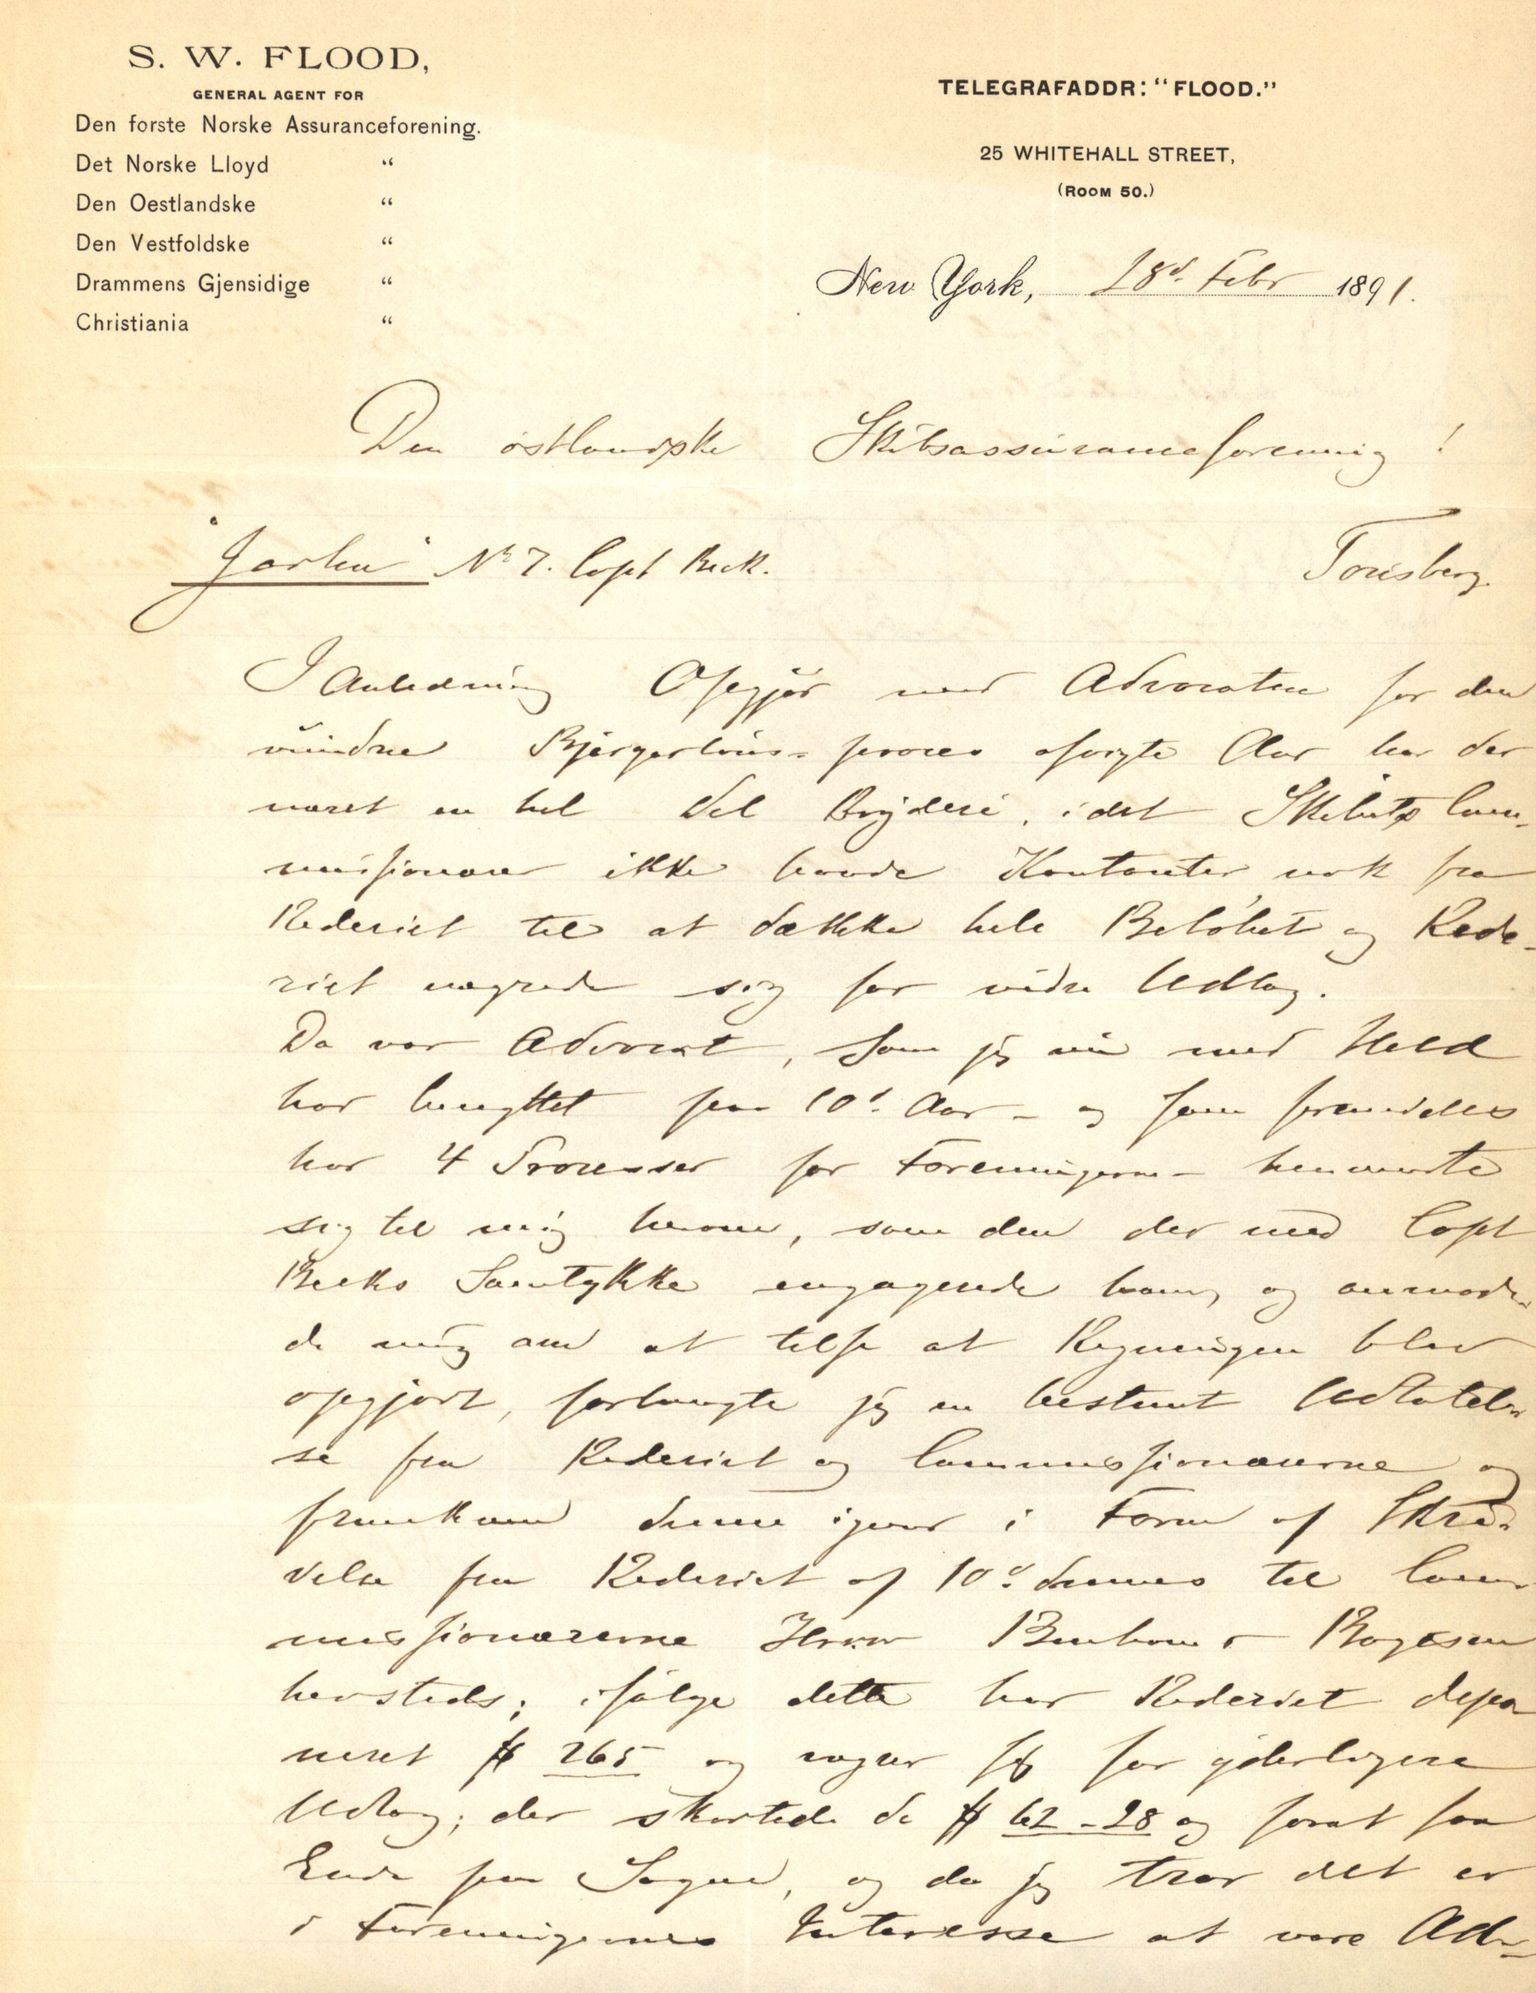 S. W. FLOOD,
GENERAL AGENT FOR
Den forste Norske Assuranceforening.
Det Norske Lloyd "
Den Oestlandske "
Den Vestfoldske "
Drammens Gjensidige "
Christiania "
TELEGRAFADDR: "FLOOD."
25 WHITEHALL STREET,
(ROOM 50.)
New York, 28d. Febr 1891.
Den östlandske Skibsassuranceforening!
"Jarlen" No 7. Capt Beck.
Tönsberg.
I Anledning Opgjör med Advocaten for den
vundne Bjergerlöns-proces forgte Aar har der
været en hel Del Bryderi, idet Skibets Com-
missionær ikke havde Kontanter nok fra
Rederiet til at dække hele Belöbet og Rede-
riet nægrede sig for vidre Udlæg.
Da vor Advocat, som jeg nu med Held
har benyttet paa 10d. Aar - og som fremdeles
har 4 Processer for Foreningerne - henvendte
sig til mig herom, som den der med Capt
Becks Samtykke engagerede ham, og anmode-
de mig om at tilse at Regningen blev
opgjort, forlangte jeg en bestemt Udtalel-
se fra Rederiet og Commissionærerne og
fremkom denne igaar i Form af Skri-
velse fra Rederiet af 10d. dennes til Com-
missionærerne Herrer Benham & Boyesen
hersteds; ifölge dette har Rederiet depo
neret $ 265 og nægter sig for yderligere
Udlæg; der skortede da $ 62-28 og forat faa
Ende paa Sagen, og da jeg tror det er
i Foreningernes Interesse at vore Adv-